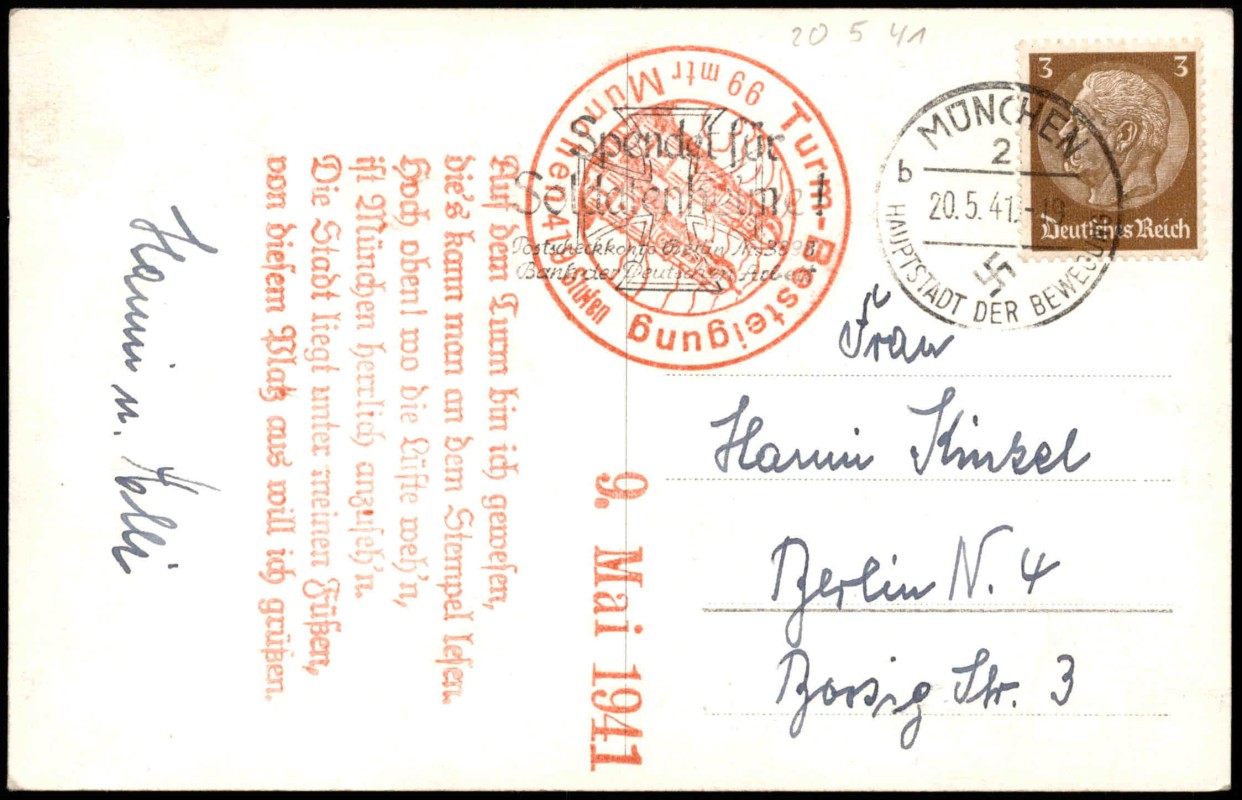 20 5 41
3 3
Deutsches Reich
MÜNCHEN
2
b
20.5.41.-19
HAUPTSTADT DER BEWEGUNG
Spendet für
Soldatenheime!
Postscheckkonto Berlin Nr.
Bank der Deutschen Arbeit
Turm-Besteigung
99 mtr München
Stufen
Auf dem Turm bin ich gewesen,
die's kann man an dem Stempel lesen.
Hoch oben! wo die Lüfte weh'n,
ist München herrlich anzuseh'n.
Die Stadt liegt unter meinen Füßen,
von diesem Platz aus will ich grüßen.
9. Mai 1941
Hanni u.
Frau
Hanni Kinzel
Berlin N. 4
Borsig Str. 3